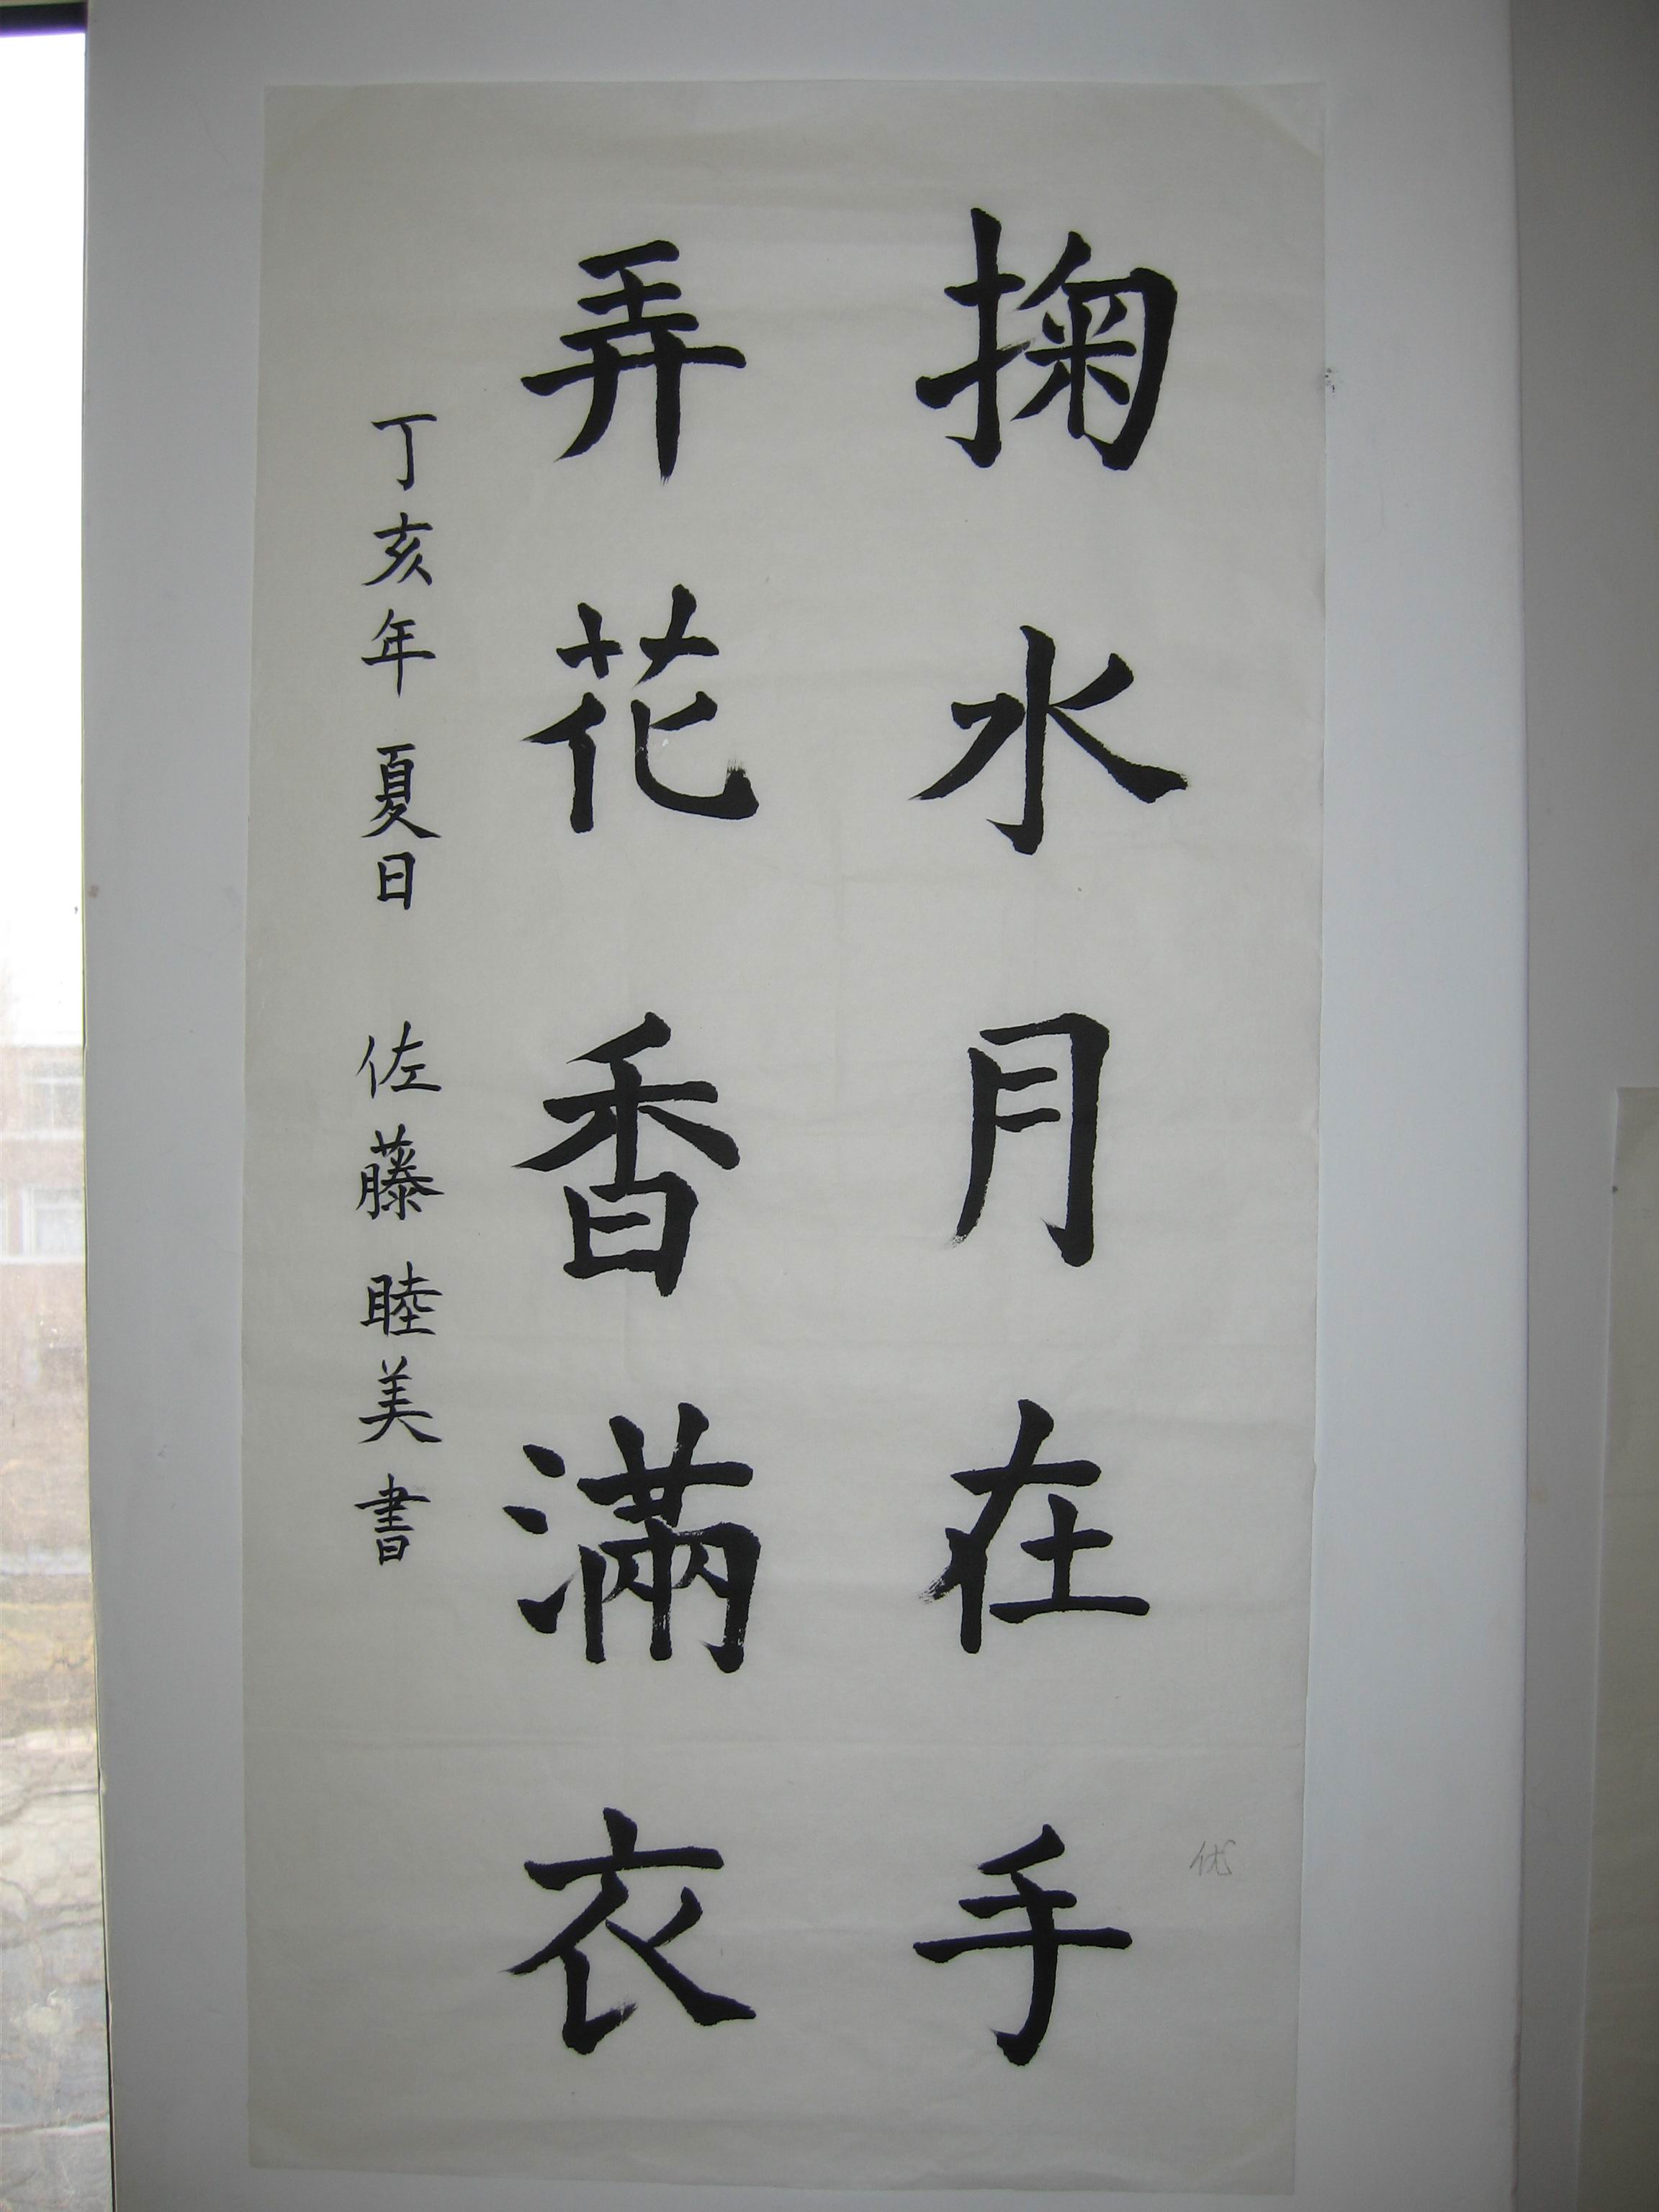 掬水月在手
弄花香滿衣
丁亥年夏日 佐藤睦美書
优